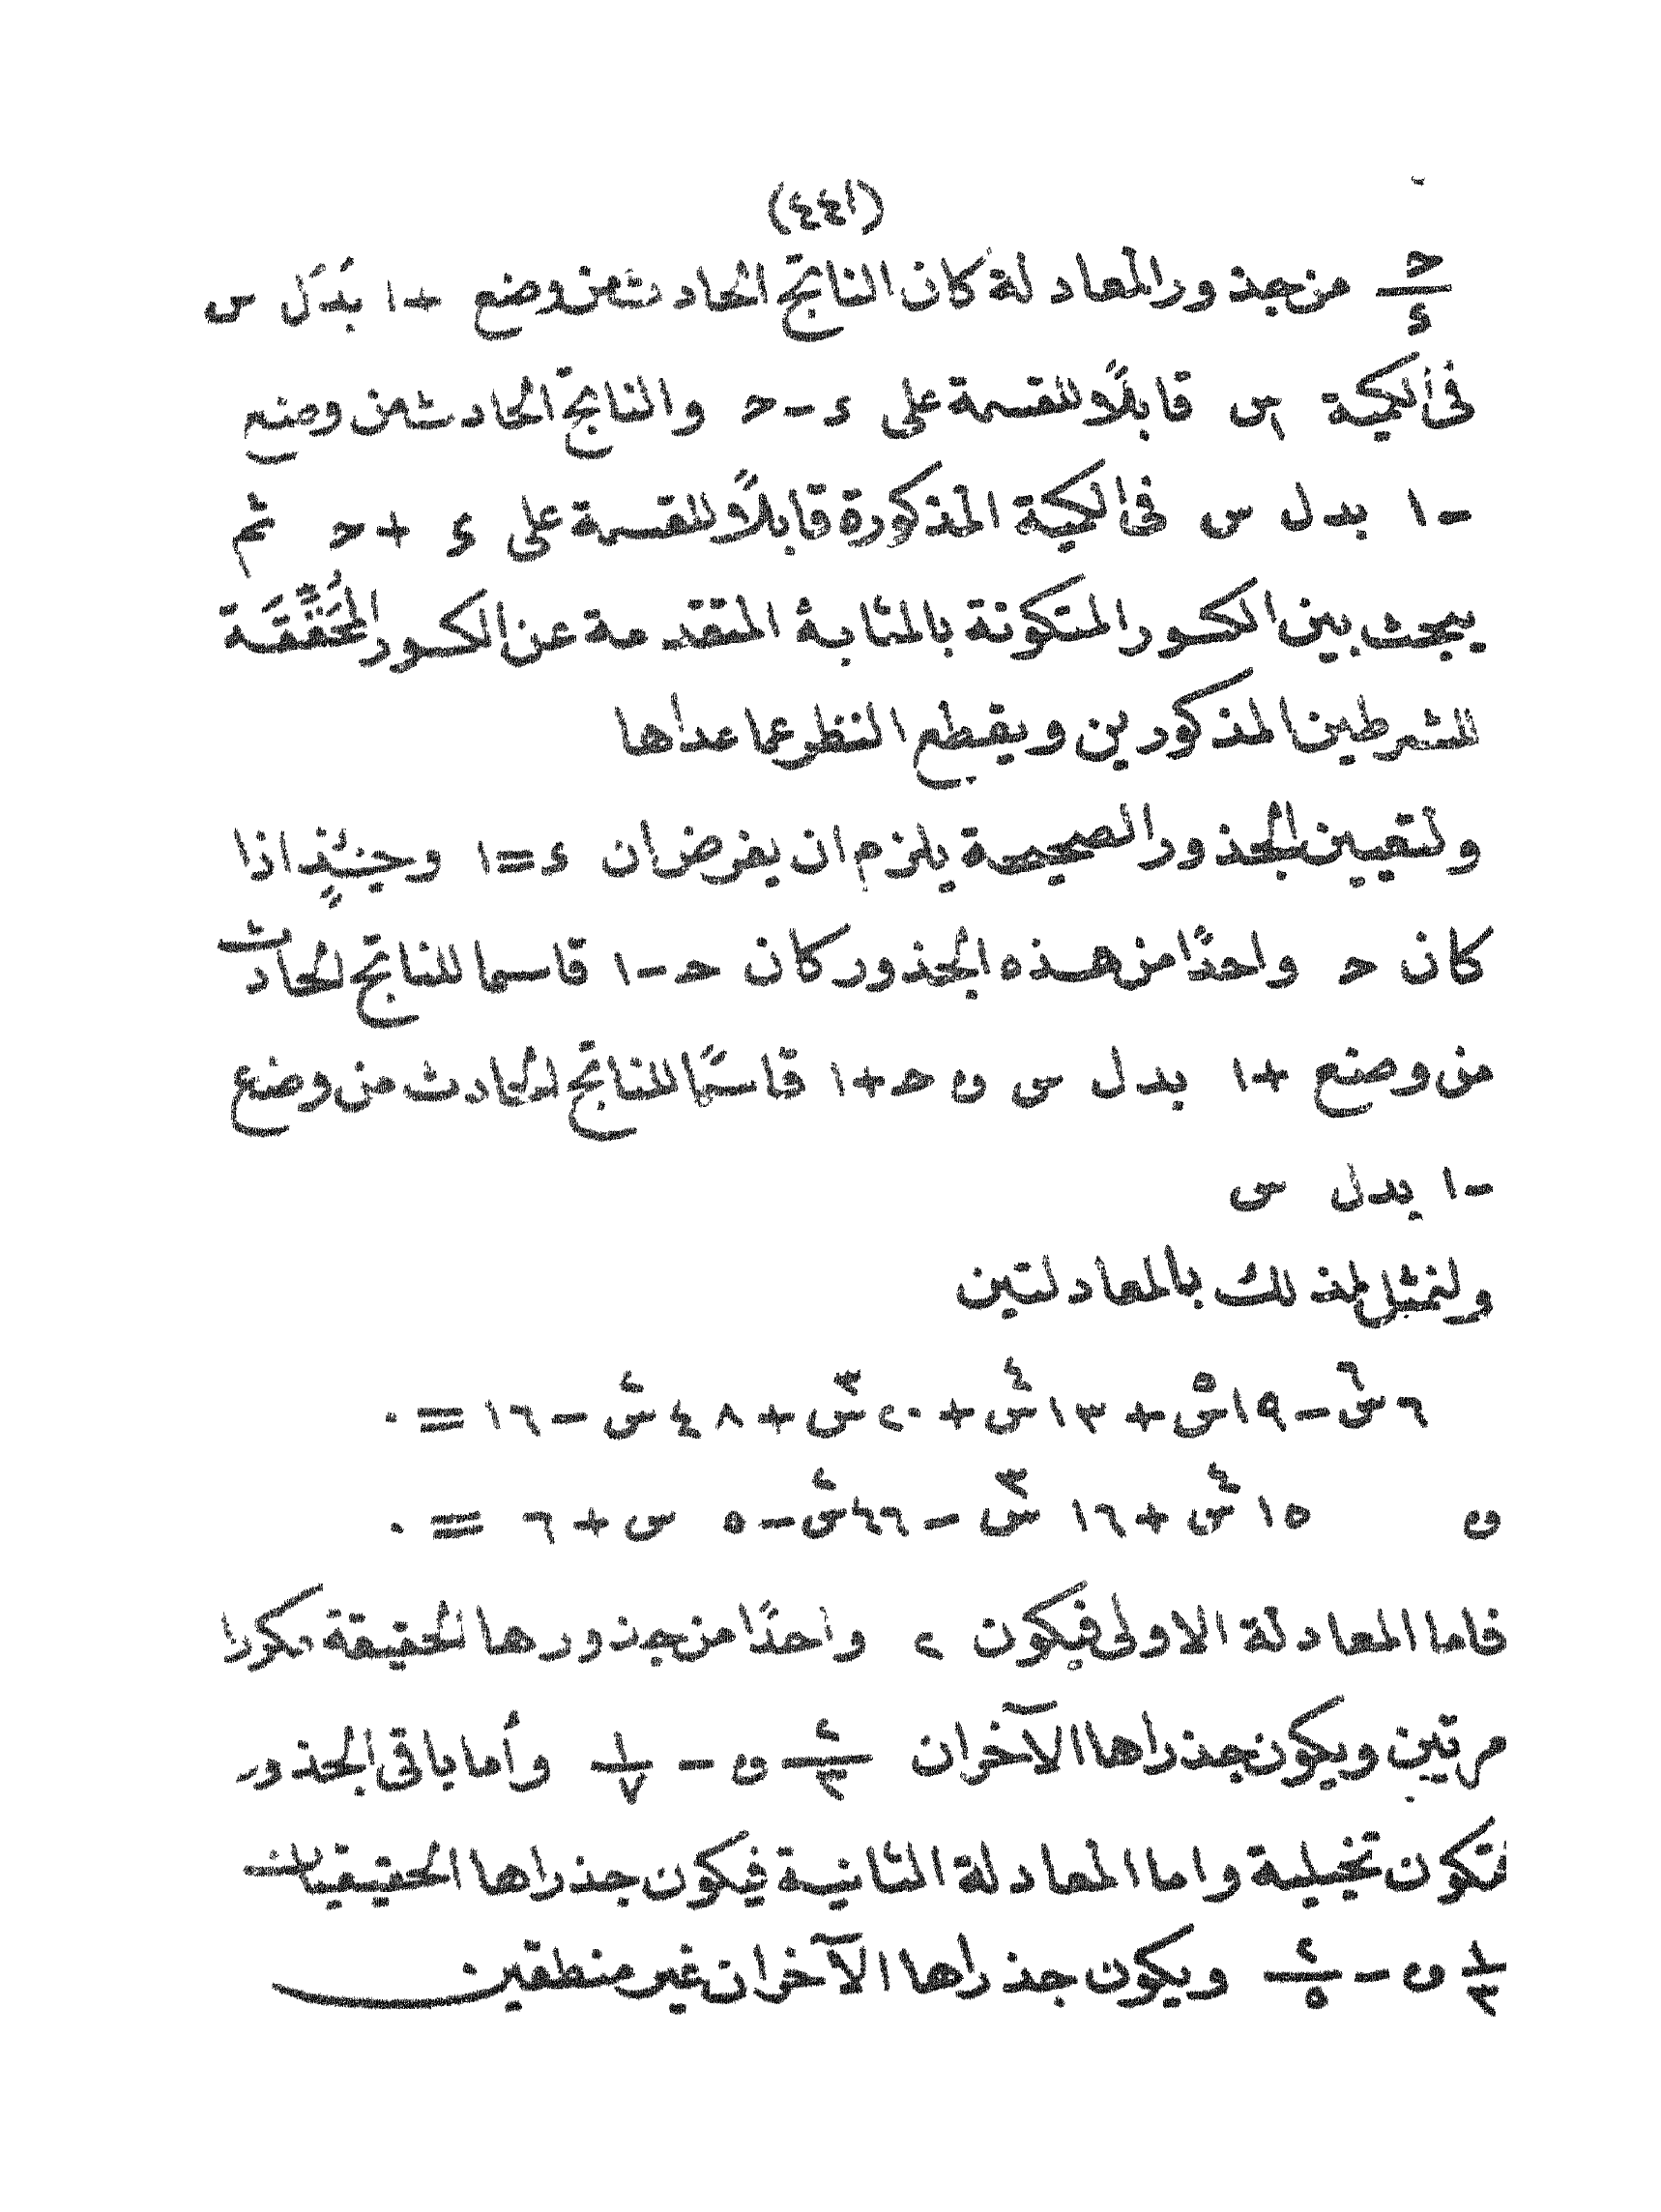 (٤٤١)
ح/ء من جذور المعادلة كان الناتج الحادث من وضع +١ بدَل س
فى الكمية س١ قابلًا للقسمة على ء-ح والناتج الحادث من وضع
-١ بدل س فى الكمية المذكورة قابلًا للقسمة على ء+ح ثم
يبحث بين الكسور المتكونة بالمثابة المتقدمة عن الكسور المُحَقِّقَة
للشرطين المذكورين ويقطع النظر عما عداها
ولتعيين الجذور الصحيحة يلزم ان يفرض ان ء=١ وحينئذٍ اذا
كان ح واحدًا من هذه الجذور كان ح-١ قاسما للناتج الحادث
من وضع +١ بدل س و ح+١ قاسمًا للناتج الحادث من وضع
-١ بدل س
ولنمثل لذلك بالمعادلتين
٦س^٦-١٩س^٥+١٣س^٤+٢٠س^٣+٤٨س^٢-١٦=٠
و ١٥س^٤+١٦س^٣-٤٦س^٢-٥س+٦=٠
فاما المعادلة الاولى فيكون ٢ واحدًا من جذورها الحقيقة مكررا
مرتين ويكون جذراها الآخران ٢/٣ و -١/٧ وأما باقى الجذور
فتكون تخيلية واما المعادلة الثانية فيكون جذراها الحقيقيان
١/٣ و -٢/٥ ويكون جذراها الآخران غير منطقين